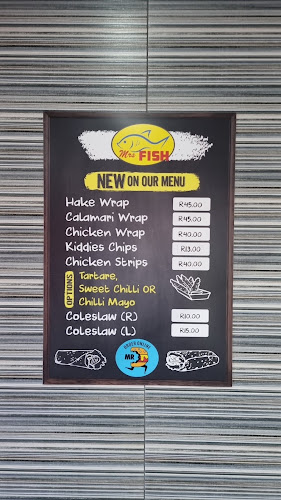 Mrs FISH
NEW ON OUR MENU
Hake Wrap R45.00
Calamari Wrap R45.00
Chicken Wrap R40.00
Kiddies Chips R13.00
Chicken Strips R40.00
OPTIONS
Tartare,
Sweet Chilli OR
Chilli Mayo
Coleslaw (R) R10.00
Coleslaw (L) R15.00
ORDER ONLINE
MR